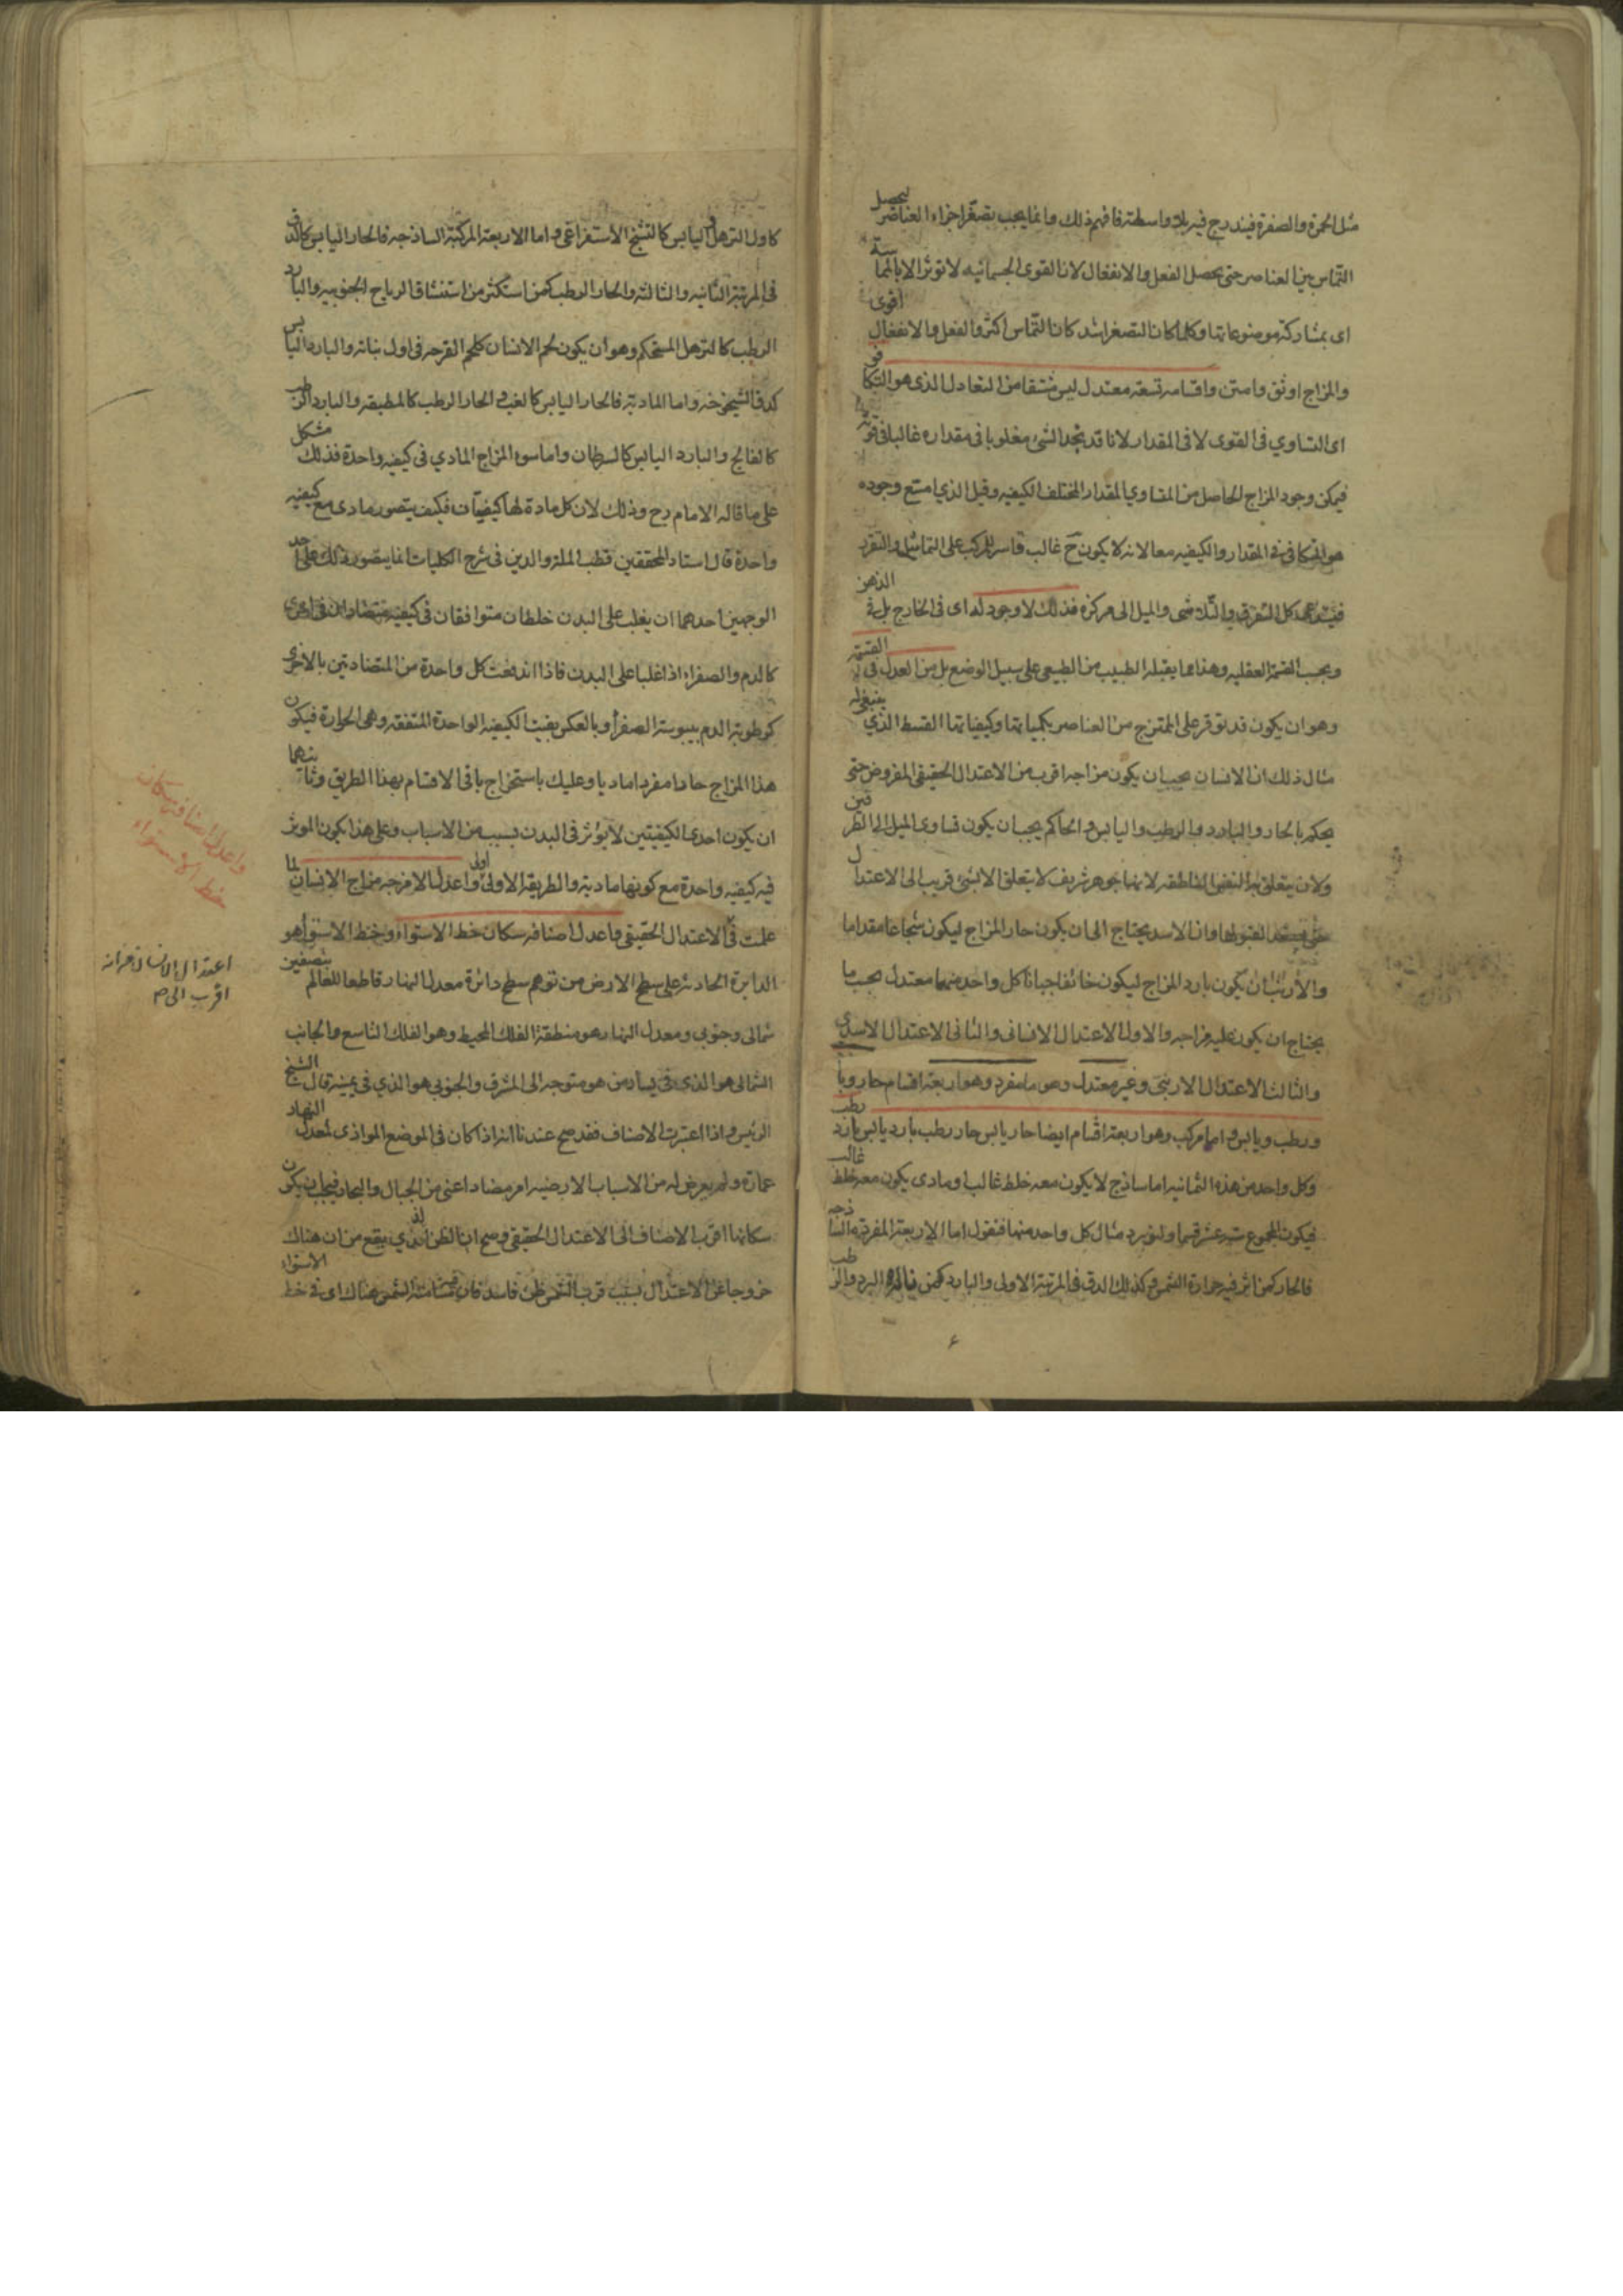 مثل الحمرة والصفرة فيندرج فيه بلا واسطة فافهم ذلك وانما يجب تصغر اجزاء العناصر ليحصل
التماس بين العناصر حتى يحصل الفعل والانفعال لان القوى الجسمانيه لا توثر الا بالمماسة
اى بمشاركة موضوعاتها وكلما كان التصغر اشد كان التماس اكثر والفعل والانفعال اقوى
والمزاج اوثق وامتن واقسامه تسعة معتدل ليس مشتقا من التعادل الذى هو التكافو
اى التساوي فى القوى لا فى المقدار لانا قد نجد الشئ مغلوبا فى مقداره غالبا فى قوته
فيمكن وجود المزاج الحاصل من المتساوي المقدار المختلف الكيفيه وقيل الذي امتنع وجوده
هو التكافى فى المقدار والكيفيه معا لانه لا يكون ح غالب قاسر للمركب على التماسك والتقرر
كل التفرق والتلاشى والميل الى مركزه فذلك لا وجود له اى فى الخارج بل فى الذهن
وبحسب القسمة العقليه وهذا مما يقبله الطبيب من الطبيعى على سبيل الوضع بل من العدل فى القسمة
وهو ان يكون قد توفر على الممتزج من العناصر بكمياتها وكيفياتها القسط الذي ينبغى له
مثال ذلك ان الانسان يجب ان يكون مزاجه اقرب من الاعتدال الحقيقى المفروض حتى
يحكم بالحار والبارد والرطب واليابس والحاكم يجب ان يكون متساوى الميل الى الطرفين
ولان يتعلق به النفس الناطقه لانها جوهر شريف لا يتعلق الا بشئ قريب الى الاعتدال
لقبولها وان الاسد يحتاج الى ان يكون حار المزاج ليكون شجاعا مقداما
والارنب ان يكون بارد المزاج ليكون خائفا جبانا كل واحد منهما معتدل بحسب ما
يحتاج ان يكون عليه مزاجه والاول الاعتدال الانسانى والثانى الاعتدال الاسدى
والثالث الاعتدال الارنبى وغير معتدل وهو اما مفرد وهو اربعة اقسام حار وبارد
ورطب ويابس واما مركب وهو اربعة اقسام ايضا حار يابس حار رطب بارد يابس بارد رطب
وكل واحد من هذه الثمانيه اما ساذج لا يكون معه خلط غالب او مادى يكون معه خلط غالب
فيكون المجموع ستة عشر قسما ولنورد مثال كل واحد منها فنقول اما الاربعة المفردة الساذجه
فالحار كمن اثر فيه حرارة الشمس وكذلك الدق فى المرتبة الاولى والبارد كمن ناله البرد والرطب
كاول الترهل واليابس كالتشنج الاستفراغى واما الاربعة المركبة الساذجه فالحار اليابس كالدق
فى المرتبة الثانيه والثالثه والحار الرطب كمن استكثر من استنشاق الرياح الجنوبيه والبارد
الرطب كالترهل المستحكم وهو ان يكون لحم الانسان كلحم القرحه فى اول نباته والبارد اليابس
كدق الشيخوخه واما الماديه فالحار اليابس كالغب و الحار الرطب كالمطبقه والبارد الرطب
كالفالج والبارد اليابس كالسرطان واما سوء المزاج المادي فى كيفيه واحدة فذلك مشكل
على ما قاله الامام رح وذلك لان كل مادة لها كيفيتان فكيف يتصور مادى مع كيفيه
واحدة قال استاد المحققين قطب الملة والدين فى شرح الكليات انما يتصور ذلك على احد
الوجهين احدهما ان يغلب على البدن خلطان متوافقان فى كيفيه متضادان فى اخرى
كالدم والصفراء اذا غلبا على البدن فاذا اندفعت كل واحدة من المتضادتين بالاخرى
كرطوبة الدم بيبوسة الصفرا وبالعكس بقيت الكيفيه الواحدة المتفقه وهى الحرارة فيكون
هذا المزاج حارا مفردا ماديا وعليك باستخراج باقى الاقسام بهذا الطريق وثانيهما
ان يكون احدى الكيفيتين لا يؤثر فى البدن بسبب من الاسباب وعلى هذا يكون الموثر
فيه كيفيه واحدة مع كونها ماديه والطريقة الاولى اولى واعدل الامزجه مزاج الانسان لما
علمت فى الاعتدال الحقيقى واعدل اصنافه سكان خط الاستواء وخط الاستواء هو
الدايرة الحادثة على سطح الارض من توهم سطح دائرة معدل النهار قاطعا للعالم بنصفين
شمالى وجنوبى ومعدل النهار هو منطقة الفلك المحيط وهو الفلك التاسع والجانب
الشمالى هو الذى فى يسار من هو متوجه الى المشرق والجنوبى هو الذي فى يمينه قال الشيخ
الرئيس واذا اعتبرت الاصناف فقد صح عندنا انه اذا كان فى الموضع الموازى لمعدل النهار
عمارة ولم يعرض له من الاسباب الارضيه امر مضاد اعنى من الجبال والبحار فيجب ان يكون
سكانها اقرب الاصناف الى الاعتدال الحقيقى وصح ان الظن الذي يقع من ان هناك
خروجا عن الاعتدال بسبب قرب الشمس ظن فاسد فان مسامتة الشمس هناك اى فى خط الاستواء
واعدل اصنافه سكان
خط الاستواء
اعتدال الانسان
اقرب الى